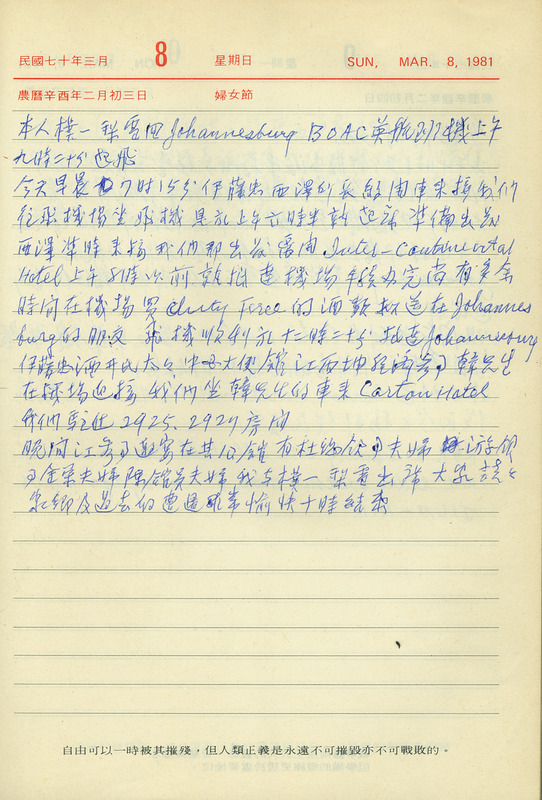 民國七十年三月 8 星期日 SUN, MAR. 8, 1981
農曆辛酉年二月初三日 婦女節
本人樸一梨雪四Johannesburg BOAC英航 機上午
九時二十分起飛
今天早晨7時15分伊藤忠西澤 長 開車來接我們
往飛機場坐飛機是於上午六時半就起床準備出發
西澤準時來接我們即出發 開Inter-Continental
Hotel上午8時以前就抵達機場手續办完尚有多余
時間在機場買duty Free的酒數 送在Johannes
burg的朋友 飛機順利於十二時二十分抵達Johannesburg
伊藤忠酒井氏太々中國大使館江 參事韓先生
在機場迎接 我們坐韓先生的車來Carton Hotel
我們駐 2925、2927房間
晚間江參事邀宴在其公館 有杜 領事夫婦 游領
事 夫婦陳館員夫婦我与樸一梨雪出席 大家談々
家鄉及過去的遭遇非常愉快十時結束
自由可以一時被其摧殘，但人類正義是永遠不可摧毀亦不可戰敗的。